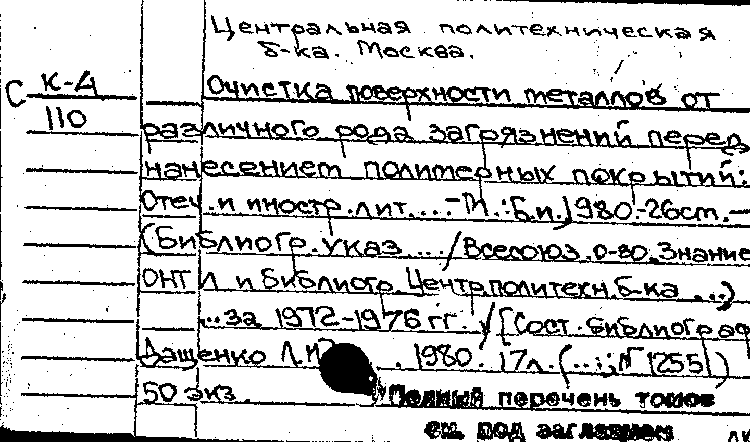 Центральная политехническая
б-ка. Москва.
С К-4 Очистка поверхности металлов от
110 различного рода загрязнений перед
нанесением полимерных покрытий:
Отеч. и иностр. лит. ... - М.: Б.и. 1980.-26см.-
(Библиогр. указ ... / Всесоюз. о-во. Знание
ОНТ Л и библиогр. Центр. политехн. б-ка ...)
...за 1972-1976 гг. / [Сост. библиограф
Дащенко Л. 1980. 17л. (...; № 1255)
50 экз.
Полный перечень томов
см. под заглавием